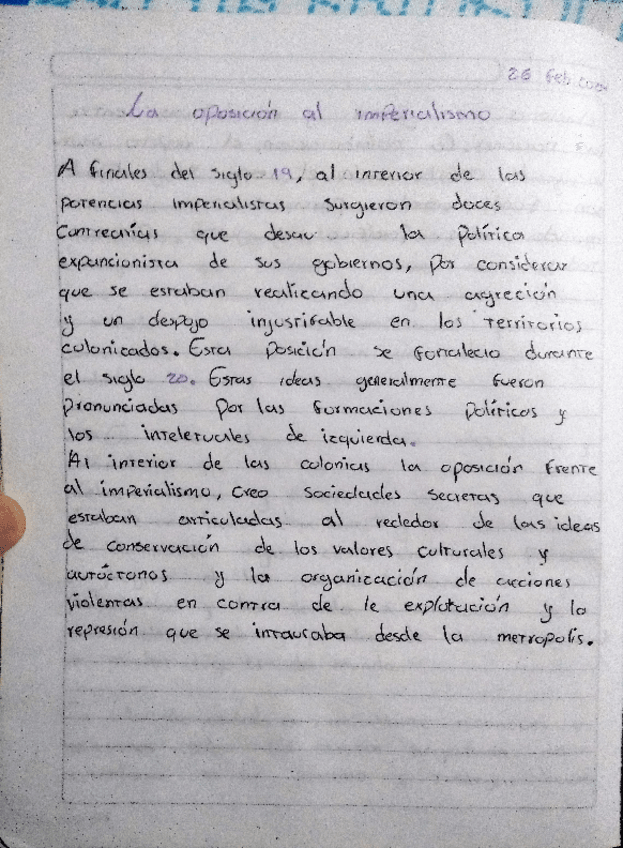 26 Feb
La oposición al imperialismo
A finales del siglo 19, al interior de las
potencias imperialistas surgieron doces
Contrearias que desau la política
expancionista de sus gobiernos, por considerar
que se estaban realizando una agreción
y un despojo injustifable en los territorios
colonicados. Esta posición se fortalecio durante
el siglo 20. Estas ideas generalmente fueron
pronunciadas por las formaciones políticos y
los inteletuales de izquierda.
Al interior de las colonias la oposición frente
al imperialismo, creo sociedades secretas que
estaban articuladas al rededor de las ideas
de conservación de los valores culturales y
autóctonos y la organización de acciones
violentas en contra de le explotación y la
represión que se intauraba desde la metropolis.